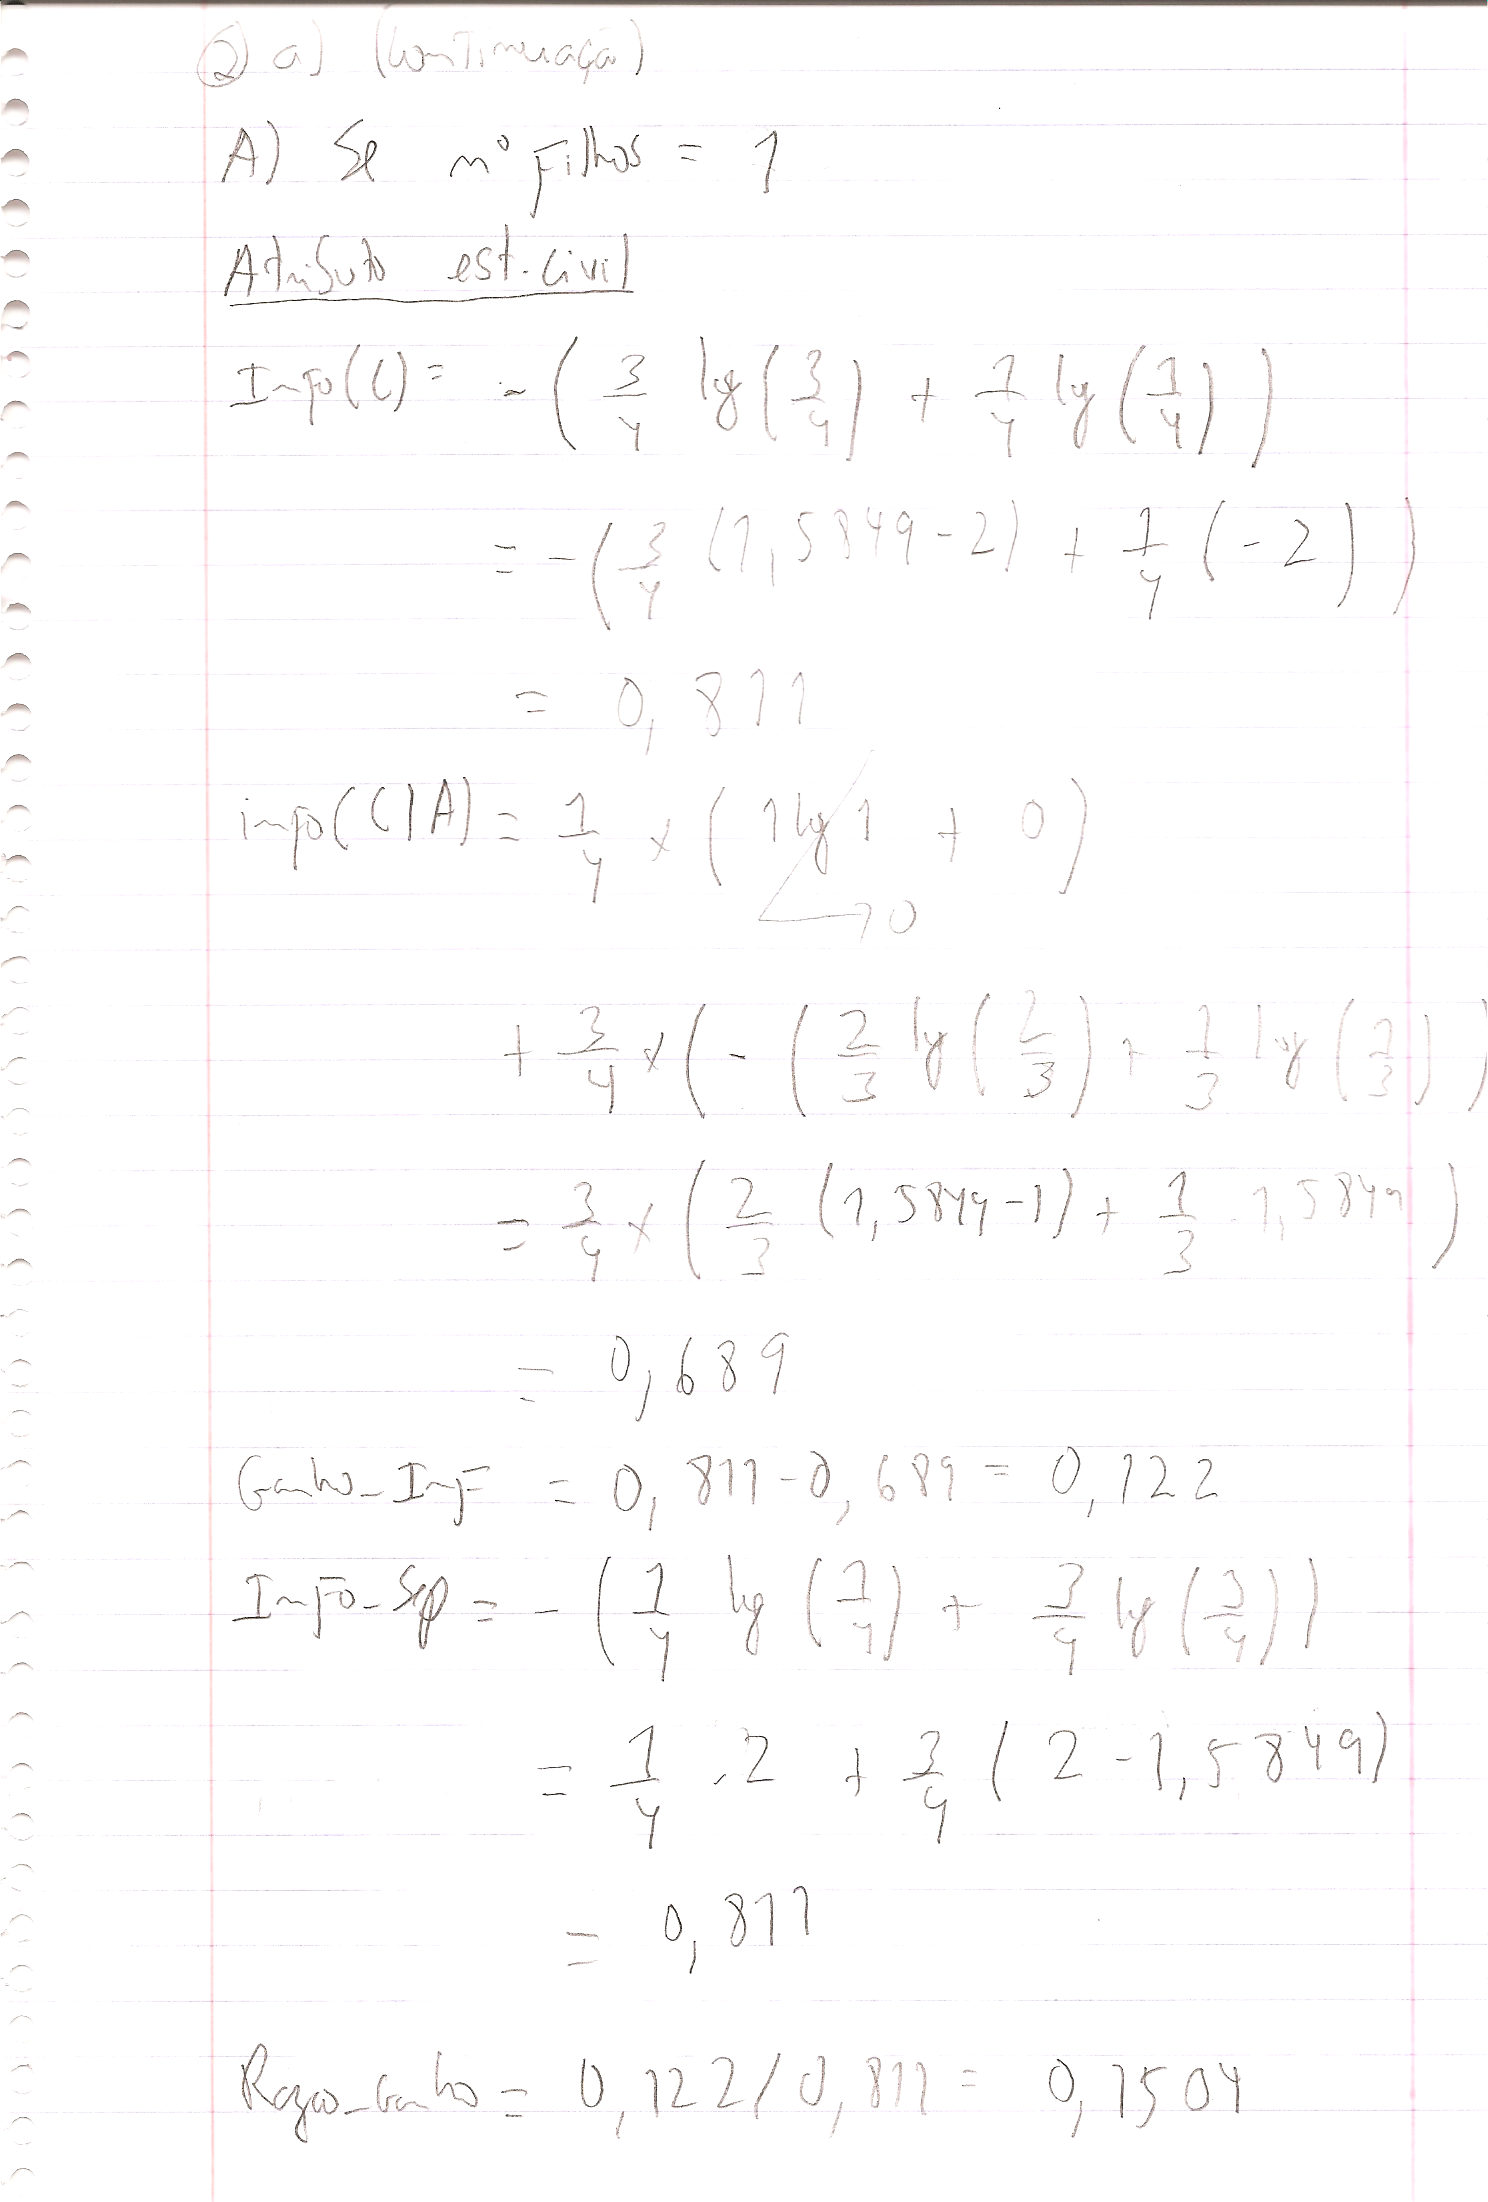 ② a) (continuação)
A) Se nº Filhos = 1
Atributo est.civil
Info(C) = - ( 3/4 lg(3/4) + 1/4 lg(1/4) )
= - ( 3/4 (1,5849 - 2) + 1/4 (-2) )
= 0,811
info(C|A) = 1/4 x ( 1 lg 1 + 0 )
→ 0
+ 3/4 x ( - ( 2/3 lg(2/3) + 1/3 lg(1/3) )
= 3/4 x ( 2/3 (1,5849 - 1) + 1/3 . 1,5849 )
= 0,689
Ganho_Inf = 0,811 - 0,689 = 0,122
Info_Sep = - ( 1/4 lg(1/4) + 3/4 lg(3/4) )
= 1/4 . 2 + 3/4 ( 2 - 1,5849 )
= 0,811
Razao_Ganho = 0,122 / 0,811 = 0,1504